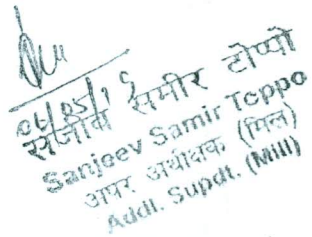 06/05/1
संजीव समीर टोप्पो
Sanjeev Samir Toppo
अपर अधीक्षक (मिल)
Addl. Supdt. (Mill)